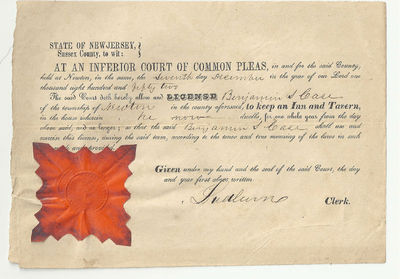 STATE OF NEW JERSEY,
Sussex County, to wit:
AT AN INFERIOR COURT OF COMMON PLEAS, in and for the said County,
held at Newton, in the same, the Seventh day December in the year of our Lord one
thousand eight hundred and fifty two
The said Court doth hereby allow and LICENSE Benjamin S. Case
of the township of Newton in the county aforesaid, to keep an Inn and Tavern,
in the house wherein he now dwells, for one whole year from the day
above said, and no longer; so that the said Benjamin S. Case shall use and
exercise this license, during the said term, according to the tenor and true meaning of the laws in such
Given under my hand and the seal of the said Court, the day
and year first above written.
Clerk.